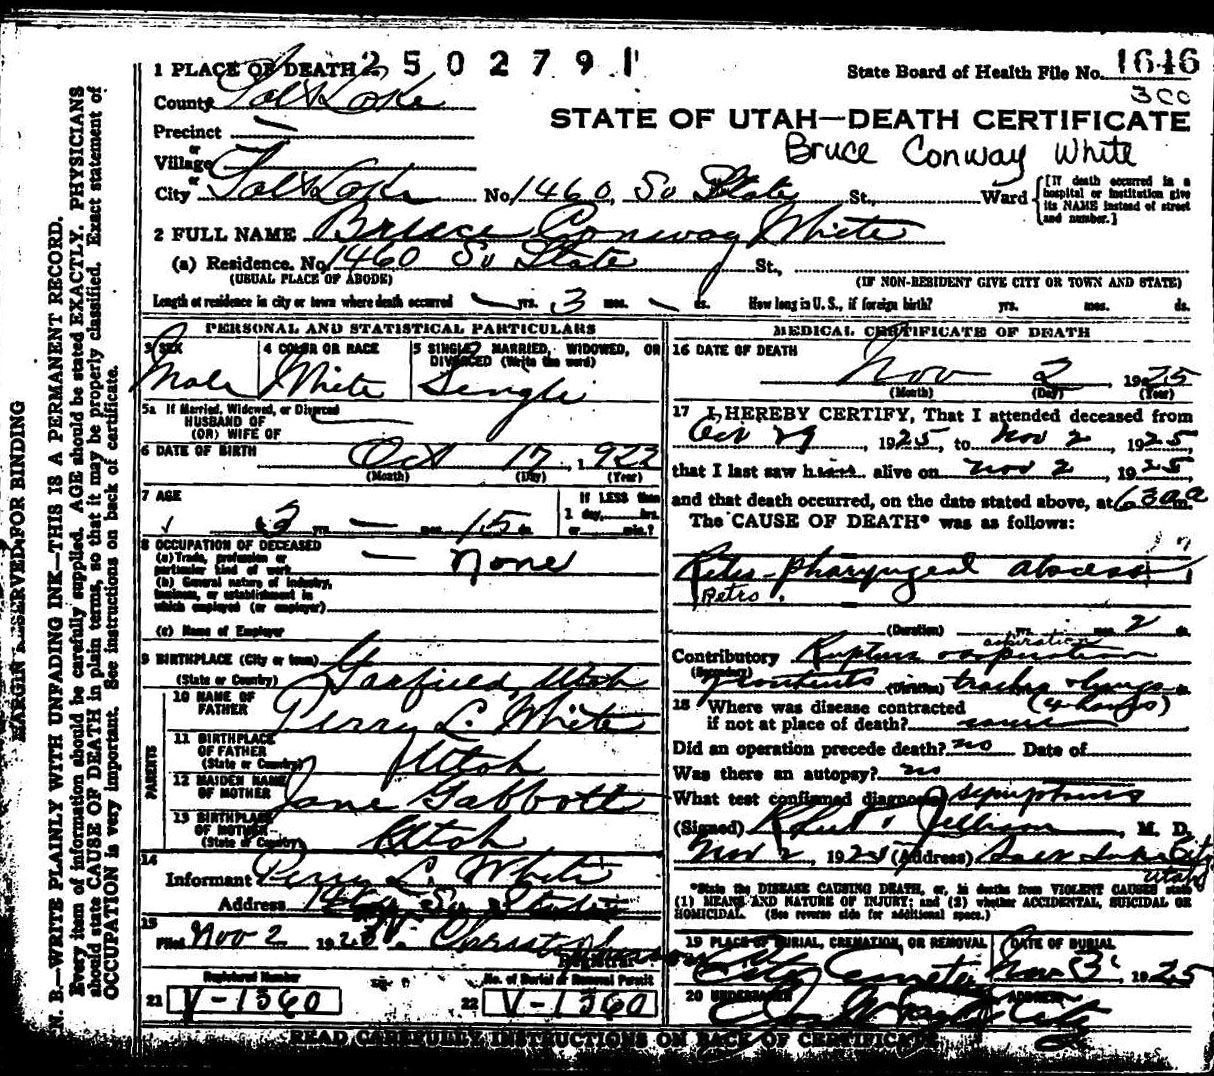 1 PLACE OF DEATH 2502791
State Board of Health File No. 1646
300
County Salt Lake
STATE OF UTAH—DEATH CERTIFICATE
Precinct —
Bruce Conway White
or
Village
or
City Salt Lake No. 1460 So State St., Ward
[If death occurred in a hospital or institution give its NAME instead of street and number.]
2 FULL NAME Bruce Conway White
(a) Residence. No. 1460 So State St.,
(USUAL PLACE OF ABODE) (IF NON-RESIDENT GIVE CITY OR TOWN AND STATE)
Length of residence in city or town where death occurred — yrs. 3 mos. — ds. How long in U. S., if foreign birth? yrs. mos. ds.
PERSONAL AND STATISTICAL PARTICULARS
3 SEX Male
4 COLOR OR RACE White
5 SINGLE, MARRIED, WIDOWED, OR DIVORCED (Write the word) Single
5a If Married, Widowed, or Divorced
HUSBAND OF
(OR) WIFE OF
6 DATE OF BIRTH Oct 17, 1922
(Month) (Day) (Year)
7 AGE 3 yrs. — mos. 15 ds.
If LESS than 1 day, hrs. or min.?
8 OCCUPATION OF DECEASED
(a) Trade, profession or particular kind of work — None
(b) General nature of industry, business, or establishment in which employed (or employer)
(c) Name of Employer
9 BIRTHPLACE (City or town)
(State or Country) Garfield, Utah
PARENTS
10 NAME OF FATHER Perry L. White
11 BIRTHPLACE OF FATHER (State or Country) Utah
12 MAIDEN NAME OF MOTHER Jane Gabbott
13 BIRTHPLACE OF MOTHER (State or Country) Utah
14
Informant Perry L. White
Address 1460 So State
15
Filed Nov 2 192
Registered Number
No. of Burial or Removal Permit
21 V-1360
22 V-1360
MEDICAL CERTIFICATE OF DEATH
16 DATE OF DEATH
Nov 2, 1925
(Month) (Day) (Year)
17 I HEREBY CERTIFY, That I attended deceased from
Oct 29 1925, to Nov 2, 1925,
that I last saw him alive on Nov 2, 1925
and that death occurred, on the date stated above, at 630 a m.
The CAUSE OF DEATH* was as follows:
Retro-pharyngeal abscess
Retro.
(Duration) yrs. mos. 2 ds.
aspiration
Contributory Rupture aspiration
(Secondary) contents (Duration) trachea & lungs
(4 hours)
18 Where was disease contracted
if not at place of death? same
Did an operation precede death? no Date of
Was there an autopsy? no
What test confirmed diagnosis? symptoms
(Signed) M. D.
Nov 2, 192 (Address) Salt Lake City
Utah
*State the DISEASE CAUSING DEATH, or, in deaths from VIOLENT CAUSES state
(1) MEANS AND NATURE OF INJURY; and (2) whether ACCIDENTAL, SUICIDAL OR
HOMICIDAL. (See reverse side for additional space.)
19 PLACE OF BURIAL, CREMATION, OR REMOVAL
City Cemetery
DATE OF BURIAL
Nov 3, 1925
20 UNDERTAKER
ADDRESS
City
READ CAREFULLY INSTRUCTIONS ON BACK OF CERTIFICATE
MARGIN RESERVED FOR BINDING
N. B.—WRITE PLAINLY WITH UNFADING INK—THIS IS A PERMANENT RECORD.
Every item of information should be carefully supplied. AGE should be stated EXACTLY. PHYSICIANS
should state CAUSE OF DEATH in plain terms, so that it may be properly classified. Exact statement of
OCCUPATION is very important. See instructions on back of certificate.